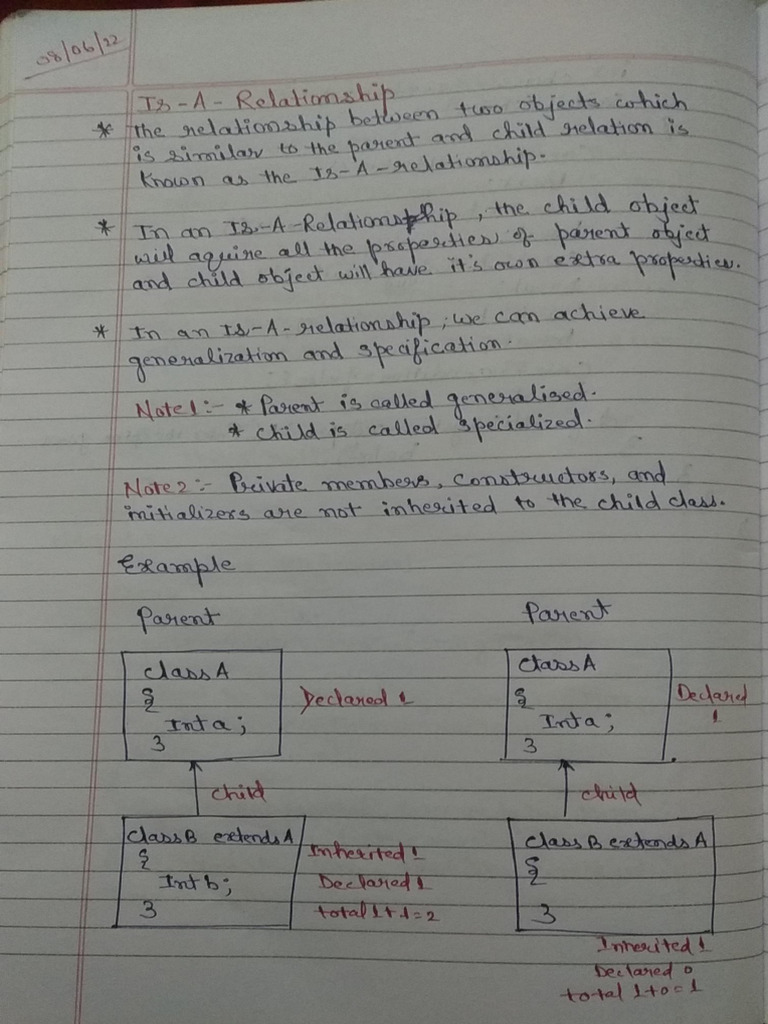 08/06/22
Is-A-Relationship
* The relationship between two objects which
is similar to the parent and child relation is
known as the Is-A-relationship.
* In an Is-A-Relationship, the child object
will aquire all the properties of parent object
and child object will have it's own extra properties.
* In an Is-A-relationship, we can achieve
generalization and specification.
Note1:- * Parent is called generalised.
* child is called specialized.
Note2:- Private members, constructors, and
initializers are not inherited to the child class.
Example
Parent
class A
{
Int a;
}
Declared 1
child
class B extends A
{
Int b;
}
Inherited 1
Declared 1
total 1+1=2
Parent
class A
{
Int a;
}
Declared
1
child
class B extends A
{
}
Inherited 1
Declared 0
total 1+0=1